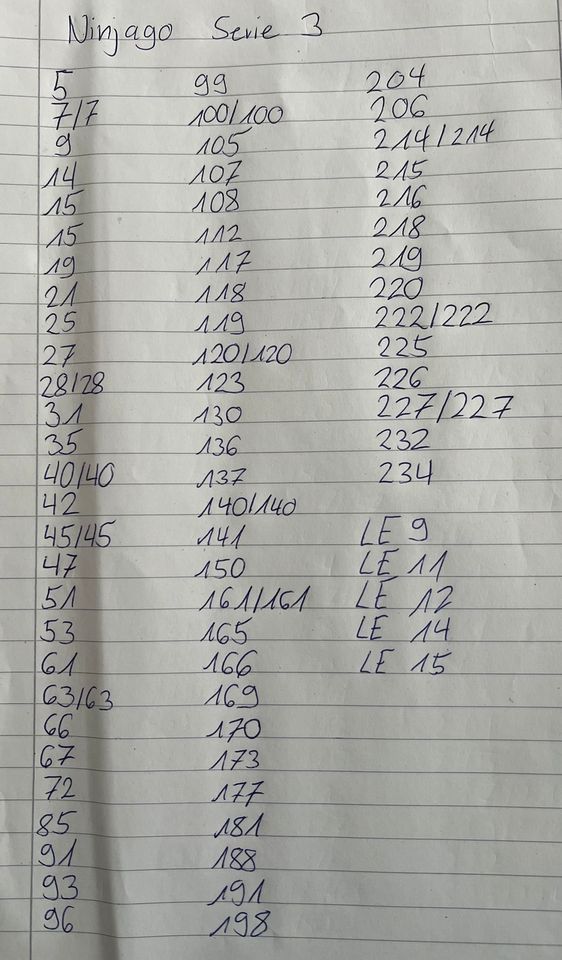 Ninjago Serie 3
5
7/7
9
14
15
15
19
21
25
27
28/28
31
35
40/40
42
45/45
47
51
53
61
63/63
66
67
72
85
91
93
96
99
100/100
105
107
108
112
117
118
119
120/120
123
130
136
137
140/140
141
150
161/161
165
166
169
170
173
177
181
188
191
198
204
206
214/214
215
216
218
219
220
222/222
225
226
227/227
232
234
LE 9
LE 11
LE 12
LE 14
LE 15